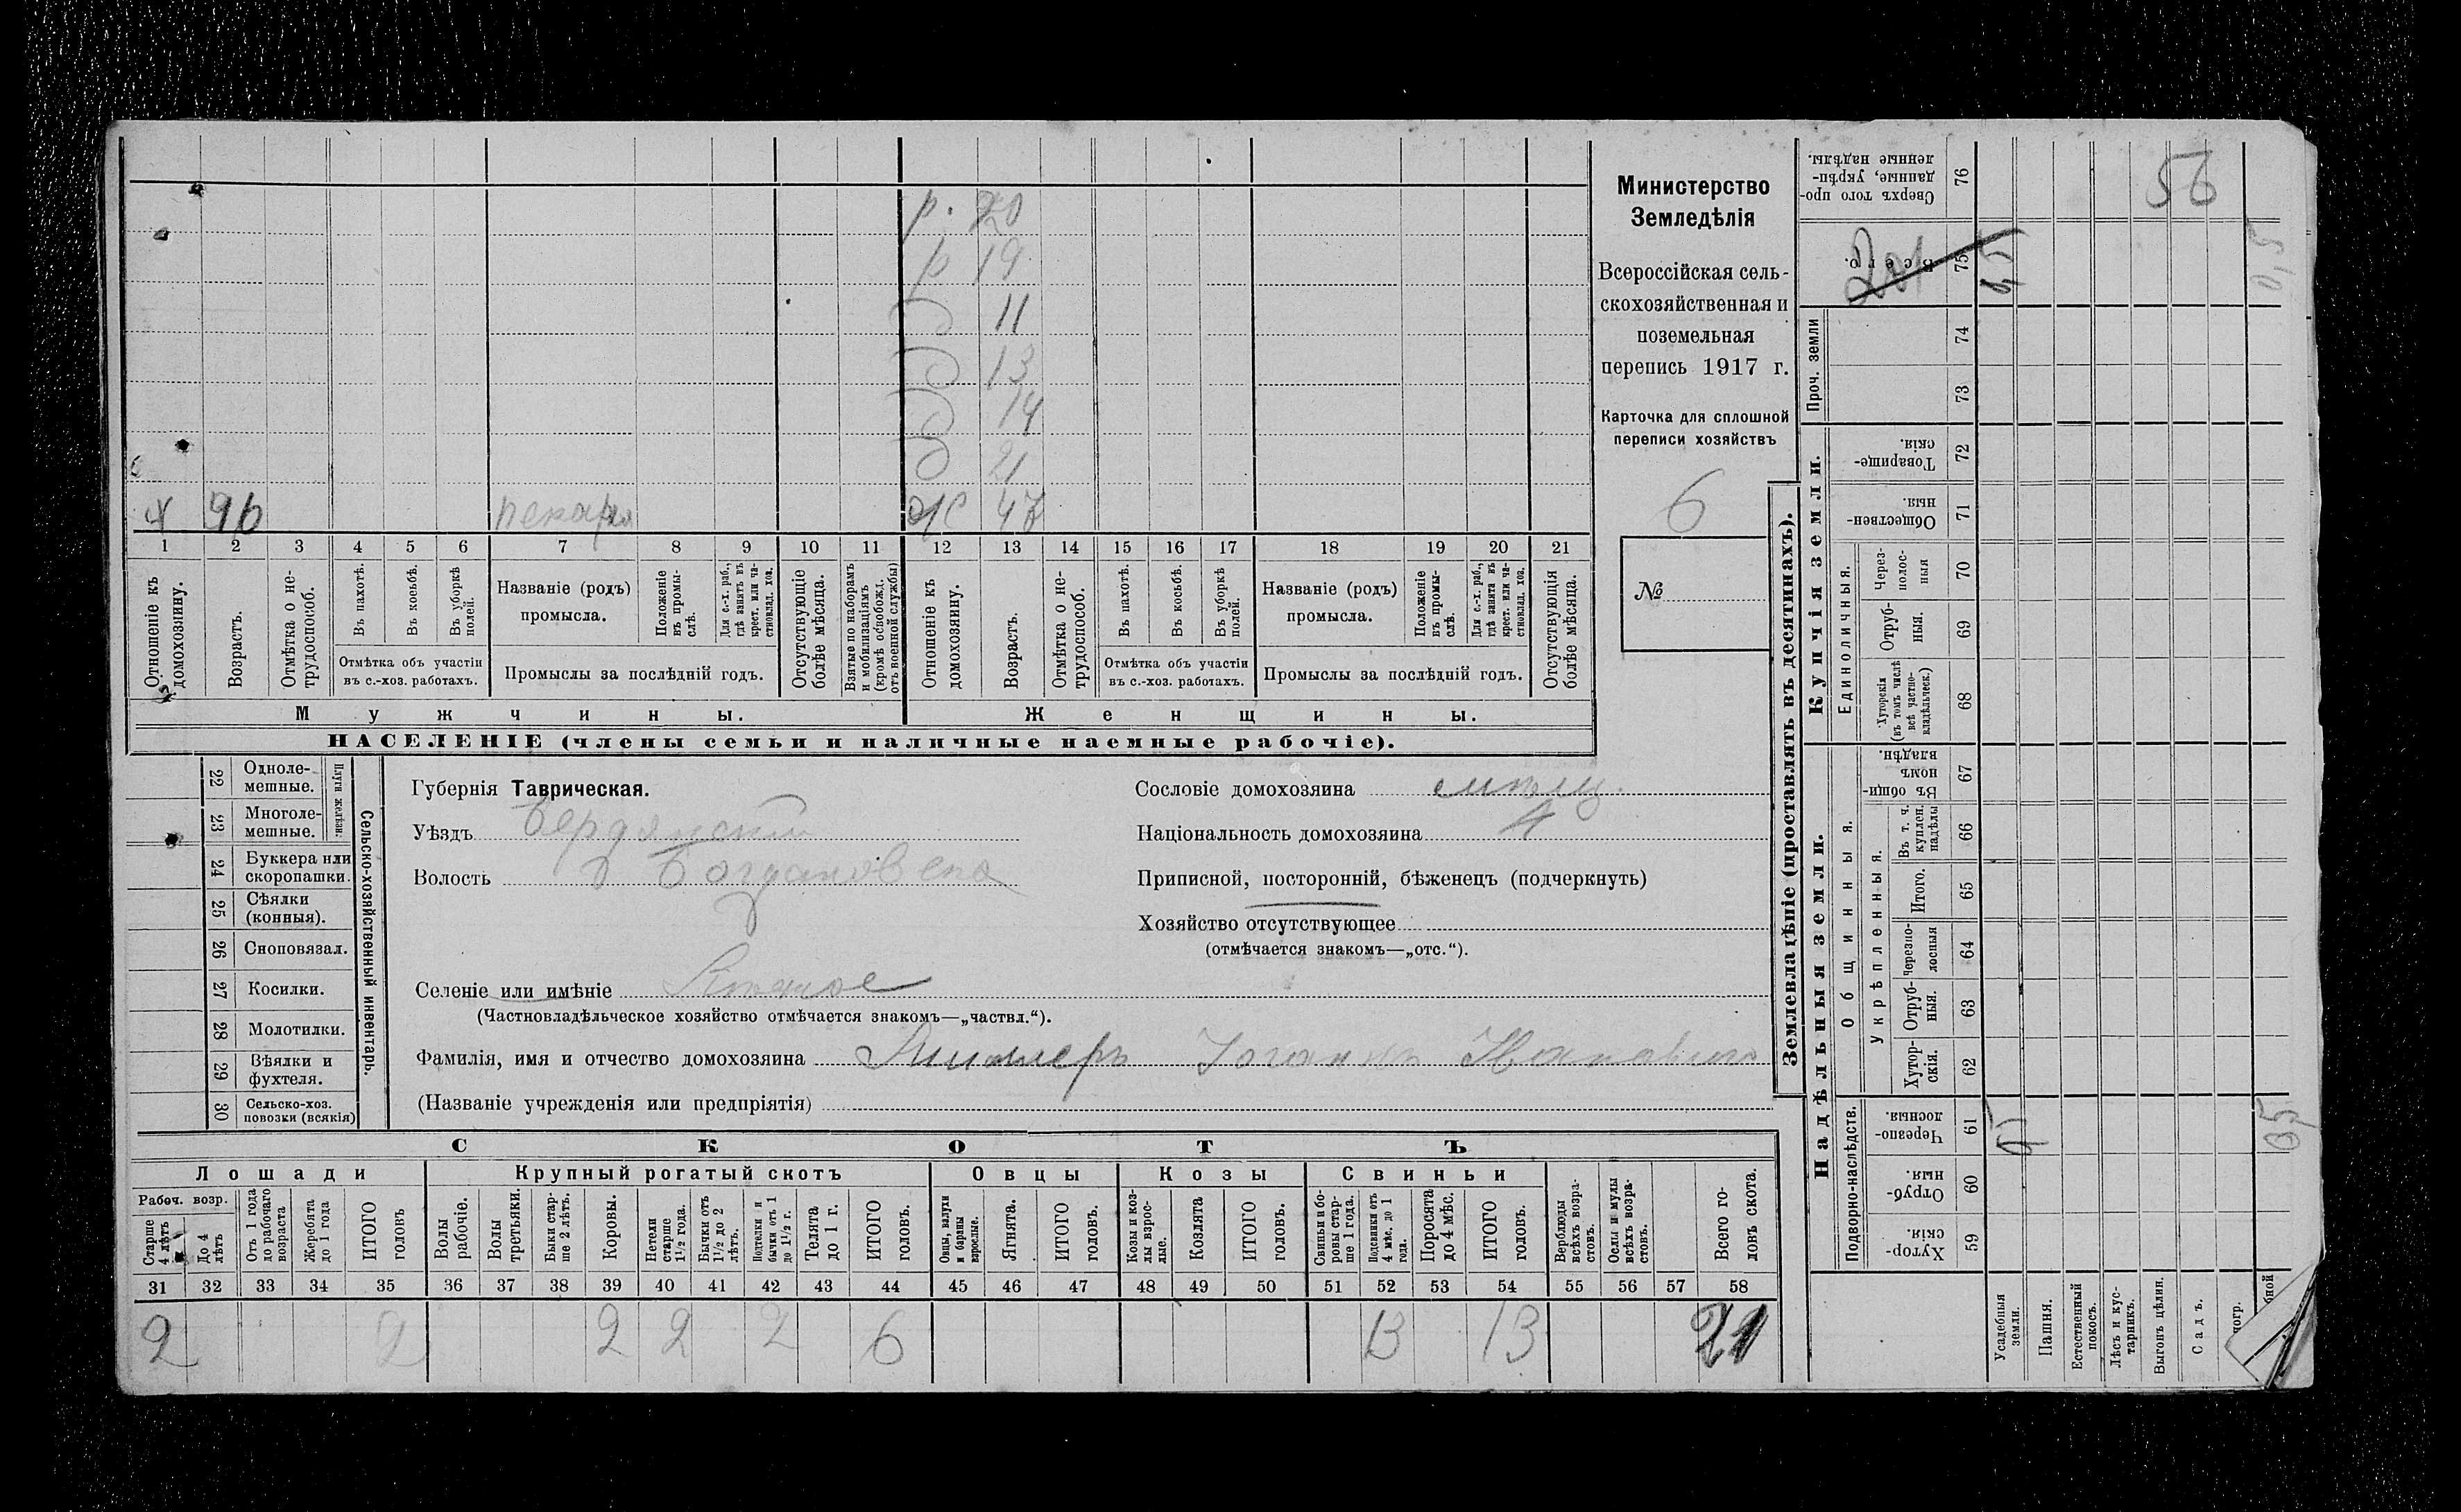 р. 20
р 19
д 11
д 13
д 14
д 21
х 96 пекарня ж 47
1 2 3 4 5 6 7 8 9 10 11 12 13 14 15 16 17 18 19 20 21
Отношеніе къ домохозяину.
Возрастъ.
Отмѣтка о нетрудоспособ.
Въ пахотѣ.
Въ косьбѣ.
Въ уборкѣ полей.
Отмѣтка объ участіи
въ с.-хоз. работахъ.
Названіе (родъ)
промысла.
Положеніе въ промыслѣ.
Для с.-х. раб., гдѣ занятъ въ крест. или частновлад. хоз.
Промыслы за послѣдній годъ.
Отсутствующіе болѣе мѣсяца.
Взятые по наборамъ и мобилизаціямъ (кромѣ освобожд. отъ военной службы)
Отношеніе къ домохозяину.
Возрастъ.
Отмѣтка о нетрудоспособ.
Въ пахотѣ.
Въ косьбѣ.
Въ уборкѣ полей.
Отмѣтка объ участіи
въ с.-хоз. работахъ.
Названіе (родъ)
промысла.
Положеніе въ промыслѣ.
Для с.-х. раб., гдѣ занята въ крест. или частновлад. хоз.
Промыслы за послѣдній годъ.
Отсутствующія болѣе мѣсяца.
Мужчины.
Женщины.
НАСЕЛЕНІЕ (члены семьи и наличные наемные рабочіе).
Министерство
Земледѣлія
Всероссійская сель-
скохозяйственная и
поземельная
перепись 1917 г.
Карточка для сплошной
переписи хозяйствъ
6
№
22 Одноле-
мешные.
23 Многоле-
мешные.
Плуги желѣзн.
24 Буккера или
скоропашки.
25 Сѣялки
(конныя).
26 Сноповязал.
27 Косилки.
28 Молотилки.
29 Вѣялки и
фухтеля.
30 Сельско-хоз.
повозки (всякія)
Сельско-хозяйственный инвентарь.
Губернія Таврическая.
Уѣздъ Бердянскій
Волость Богдановска
Селеніе или имѣніе
(Частновладѣльческое хозяйство отмѣчается знакомъ—„частвл.“).
Фамилія, имя и отчество домохозяина Іоганнъ
(Названіе учрежденія или предпріятія)
Сословіе домохозяина
Національность домохозяина
Приписной, посторонній, бѣженецъ (подчеркнуть)
Хозяйство отсутствующее
(отмѣчается знакомъ—„отс.“).
СКОТЪ
Лошади
Рабоч. возр.
Старше 4 лѣтъ
До 4 лѣтъ
Отъ 1 года до рабочаго возраста
Жеребята до 1 года
ИТОГО головъ
Крупный рогатый скотъ
Волы рабочіе.
Волы третьяки.
Быки старше 2 лѣтъ.
Коровы.
Нетели старше 1½ года.
Бычки отъ 1½ до 2 лѣтъ.
Подтелки и бычки отъ 1 до 1½ г.
Телята до 1 г.
ИТОГО головъ.
Овцы
Овцы, валухи и бараны взрослые.
Ягнята.
ИТОГО головъ.
Козы
Козы и козлы взрослые.
Козлята
ИТОГО головъ.
Свиньи
Свиньи и боровы старше 1 года.
Подсвинки отъ 4 мѣс. до 1 года.
Поросята до 4 мѣс.
ИТОГО головъ.
Верблюды всѣхъ возрастовъ.
Ослы и мулы всѣхъ возрастовъ.
Всего головъ скота.
31 32 33 34 35 36 37 38 39 40 41 42 43 44 45 46 47 48 49 50 51 52 53 54 55 56 57 58
2 2 2 2 2 6 13 13 21
Землевладѣніе (проставлять въ десятинахъ).
Сверхъ того проданные, укрѣпленные надѣлы. 76
56
Всего. 75
0,5
Проч. земли
74
73
Купчія земли.
Товарищескія. 72
Общественныя. 71
Единоличныя.
Черезполосныя 70
Отрубныя. 69
Хуторскія (въ томъ числѣ всѣ частновладѣльческ.) 68
Надѣльныя земли.
Общинныя.
Въ общинномъ владѣн. 67
Укрѣпленныя.
Въ т. ч. куплен. надѣлы 66
Итого. 65
Черезполосныя 64
Отрубныя. 63
Хуторскія. 62
Подворно-наслѣдств.
Черезполосныя. 61
0,5
Отрубныя. 60
Хуторскія. 59
Усадебныя земли.
Пашня.
Естественный покосъ.
Лѣсъ и кустарникъ.
Выгонъ цѣлин.
Садъ.